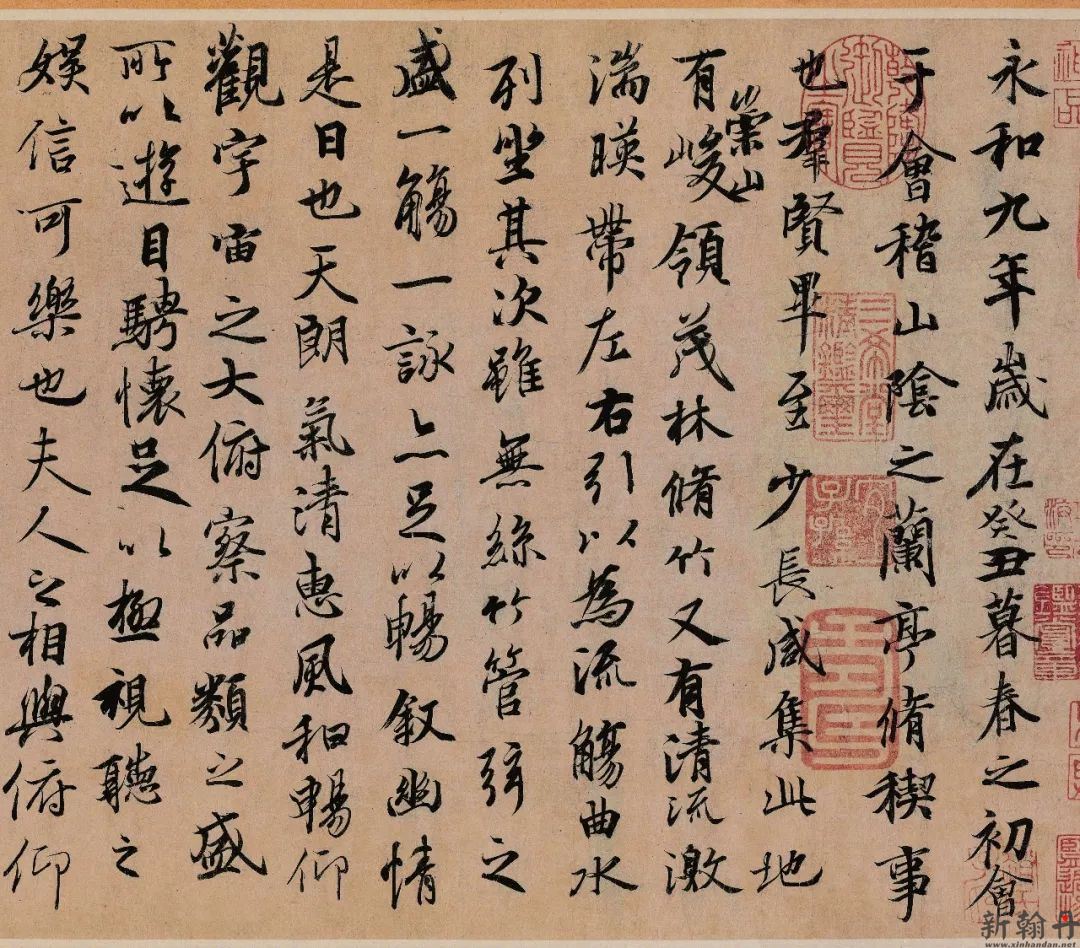 永和九年歲在癸丑暮春之初會
于會稽山陰之蘭亭脩稧事
也羣賢畢至少長咸集此地
有崇山峻領茂林脩竹又有清流激
湍暎帶左右引以為流觴曲水
列坐其次雖無絲竹管弦之
盛一觴一詠亦足以暢叙幽情
是日也天朗氣清惠風和暢仰
觀宇宙之大俯察品類之盛
所以遊目騁懷足以極視聽之
娛信可樂也夫人之相與俯仰
神品
三希堂精鑑璽
宜子孫
新翰丹
www.xinhandan.net